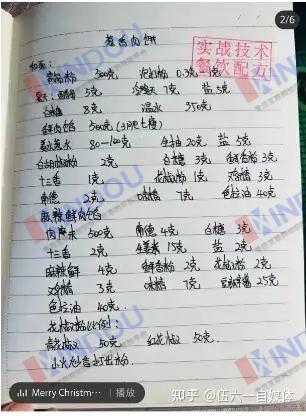 2/6
葱香肉饼
实战技术
餐饮配方
和面:
500g 泡打粉 0.3g
5克 冷油 7克 盐5克
白糖 8克 温水 350克
鲜肉馅 500g (3肥七瘦)
葱姜水 80—100克 生抽20克 盐5克
白胡椒粉 2克 白糖 3克 鲜香粉 3克
十三香 1克 花椒粉 1克 鸡精 3克
南德 2克 味精 7克 色拉油 40克
麻辣鲜肉馅
肉 500克 南德 4克 白糖 3克
十三香 2克 生姜末 15克 盐 2克
麻辣鲜 4克 鲜香粉 2克 花椒粉 2克
鸡精 3克 味精 7克 豆瓣酱 25克
色拉油 40克
花椒粉比例:
青花椒 50克 红花椒 50克
小火炒香打出粉
Merry Christm… 播放
知乎 @伍六一自媒体